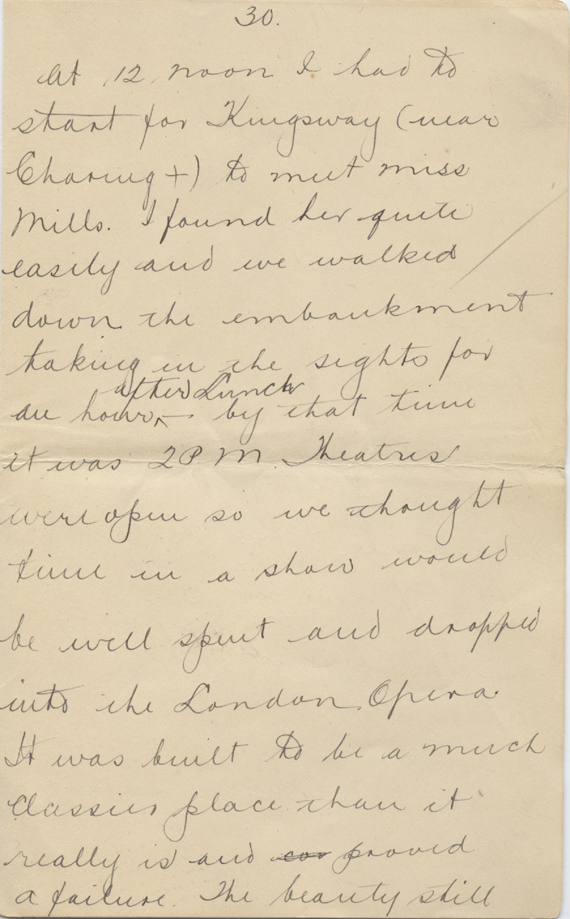 30.
At 12 noon I had to
start for Kingsway (near
Charing +) to meet miss
Mills. I found her quite
easily and we walked
down the embankment
taking in the sights for
after Lunch
an hour, — by that time
it was 2 P M. Theatres
were open so we thought
time in a show would
be well spent and dropped
into the London Opera.
It was built to be a much
classier place than it
really is and cor proved
a failure. The beauty still